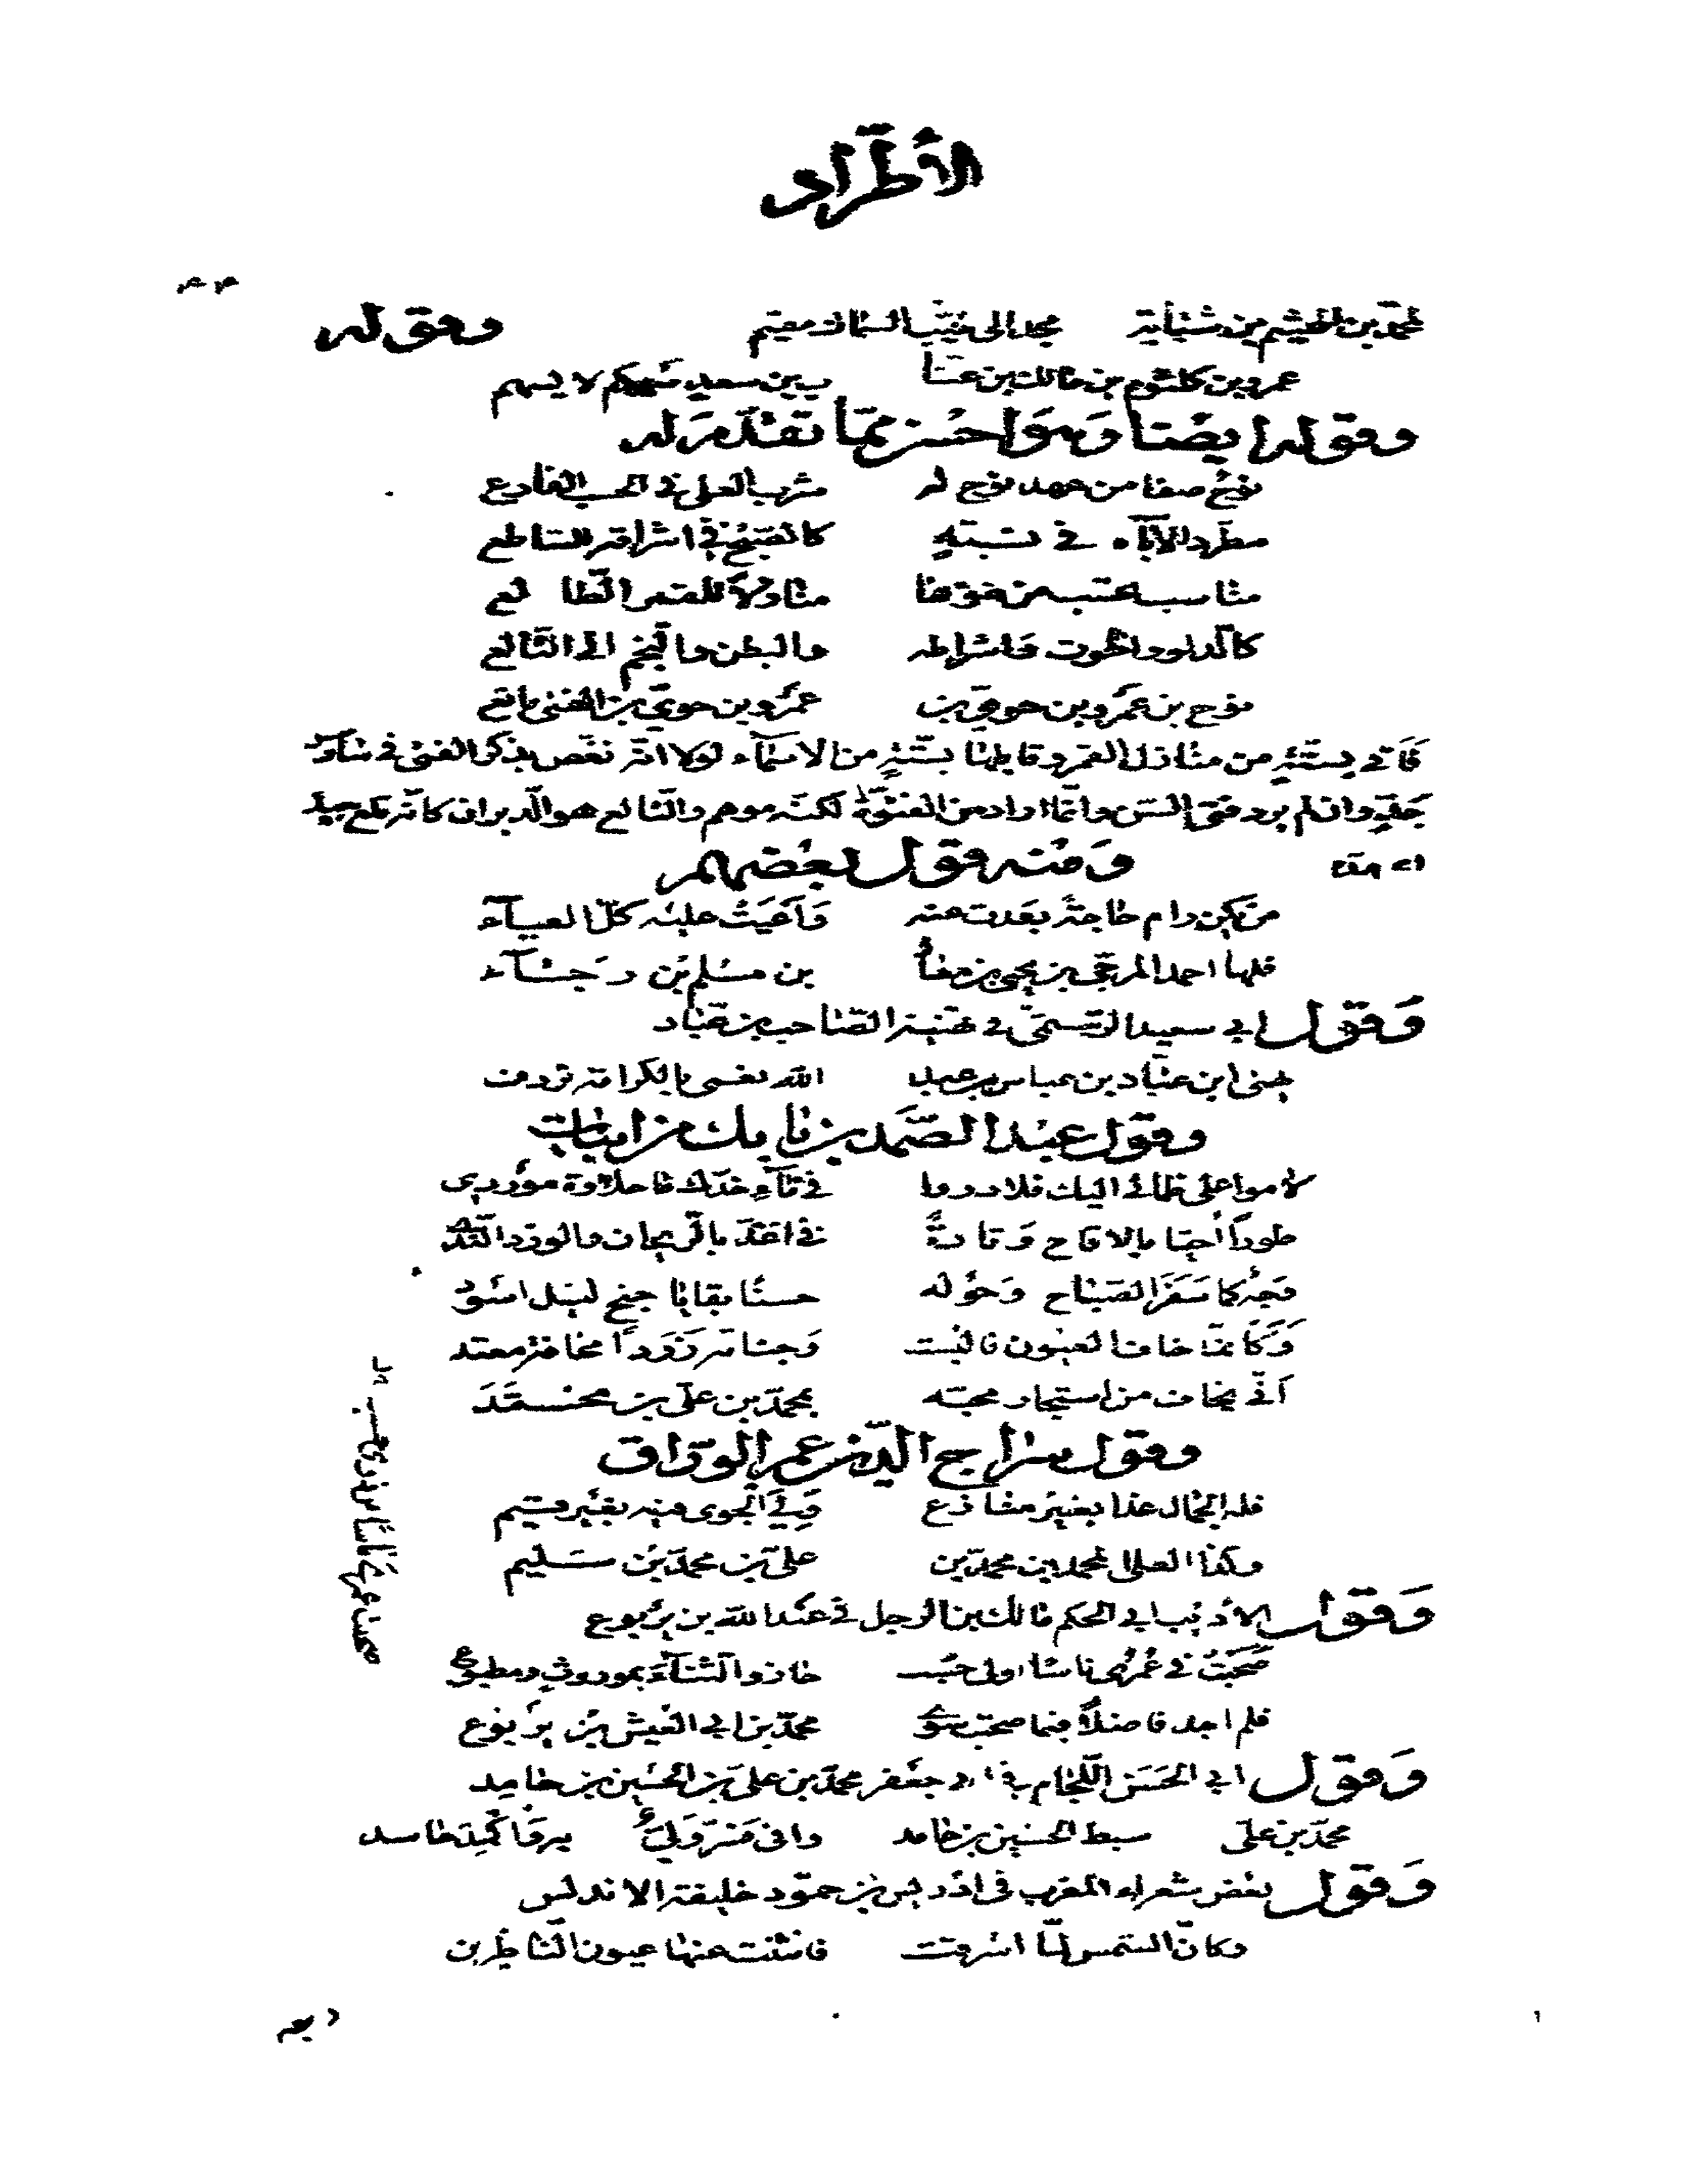 الأطّراد
لمحمّد بن الهيثم من شبانة مجد الى جنب السماك مقيم وقوله
عمرو بن كلثوم بن مالك بن عتّا ب بن سعد سهمكم لا يسهم
وقوله ايضًا وهو احسن ممّا تقدّم له
نوحٌ صفا من عهد نوح له شرب العلى في الحسب الفارع
مطّرد الآباء في نسبة كالصبح في اشراقه الساطع
مناسب تحسب من ضوءها منازلاً للقمر الطالع
كالدلو والحوت واشراطه والبطن والنجم الى التالع
نوح بن عمرو بن حويّ بن عمرو بن حويّ بن الفتى ماتع
فاتى بستّة من منازل القمر وقابلها بستّة من الاسماء لولا انّه نغّص بذكر الفتى في
وان لم يرد فتى السّن وانّما اراد من الفتوّة لكنّه موهم والتالع هو الدبران كانّه تلع جيده
ومنه قول بعضهم
من يكن رام حاجة بعدت عنه وأعيت عليه كلّ العياء
فلها احمد المرجّى بن يحيى بن معا بن مسلم بن رجاء
وقول ابي سعيد الرستمي في تهنية الصاحب بن عبّاد
يهنى ابن عبّاد بن عباس بن عبد الله نعمى بالكرامة تردف
وقول عبد الصّمد بن بابك من ابيات
لاموا على ظمائى اليك فلا دروا في ماء خدّك ما حلاوة موردى
طوراً احيّا بالاقاح وتارةً في الخدّ بالريحان والورد النّد
وجه كما سفر الصباح وحوله حسنًا بقايا جنح ليل اسود
وكانّما خاف العيون فالبست وجناته زردًا مخافة معتد
انّى يخاف من استجار محبّه بمحمّد بن علىّ بن محمّد
وقول سراج الدّين عمر الورّاق
فله الجمال غدا بغير منازع ولى الجوى فيه بغير قسيم
وكذا العلى لمحمد بن محمّد بن علىّ بن محمّد بن سليم
وقول الأديب ابي الحكم مالك بن المرحل في عبد الله بن يربوع
صحبت في عمرى ناسًا اولى حسب حازوا الثّناء بموروث ومطبوع
فلم اجد فاضلاً فيما صحبت سوى محمّد بن ابي العيش بن يربوع
وقول ابي الحسن اللّحّام في ابي جعفر محمّد بن علىّ بن الحسين بن حامد
محمّد بن علىّ سبط الحسين بن حامد
وقول بعض شعراء المغرب في ادريس بن حمّود خليفة الاندلس
وكانّ الشمس لمّا اشرقت فانثنت عنها عيون النّاظرين